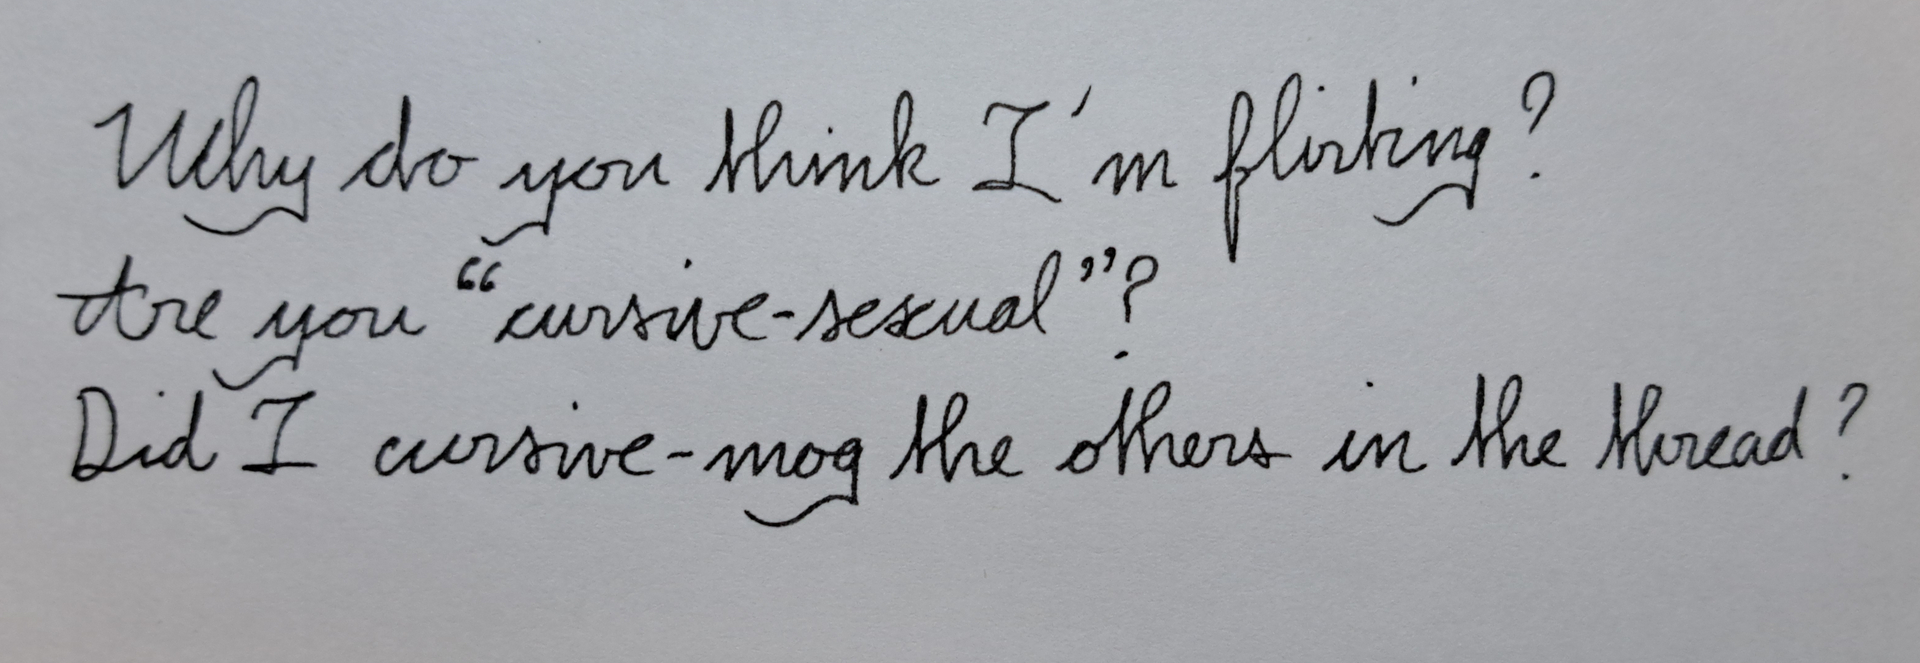 Why do you think I'm flirting?
Are you “cursive-sexual”?
Did I cursive-mog the others in the thread?